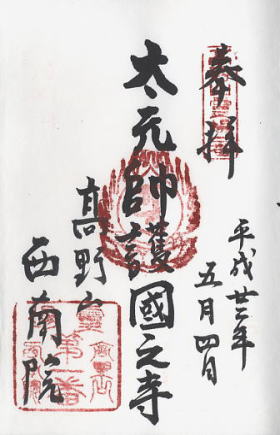 奉拝
平成廿二年
五月四日
太元帥護國之寺
高野山
西南院